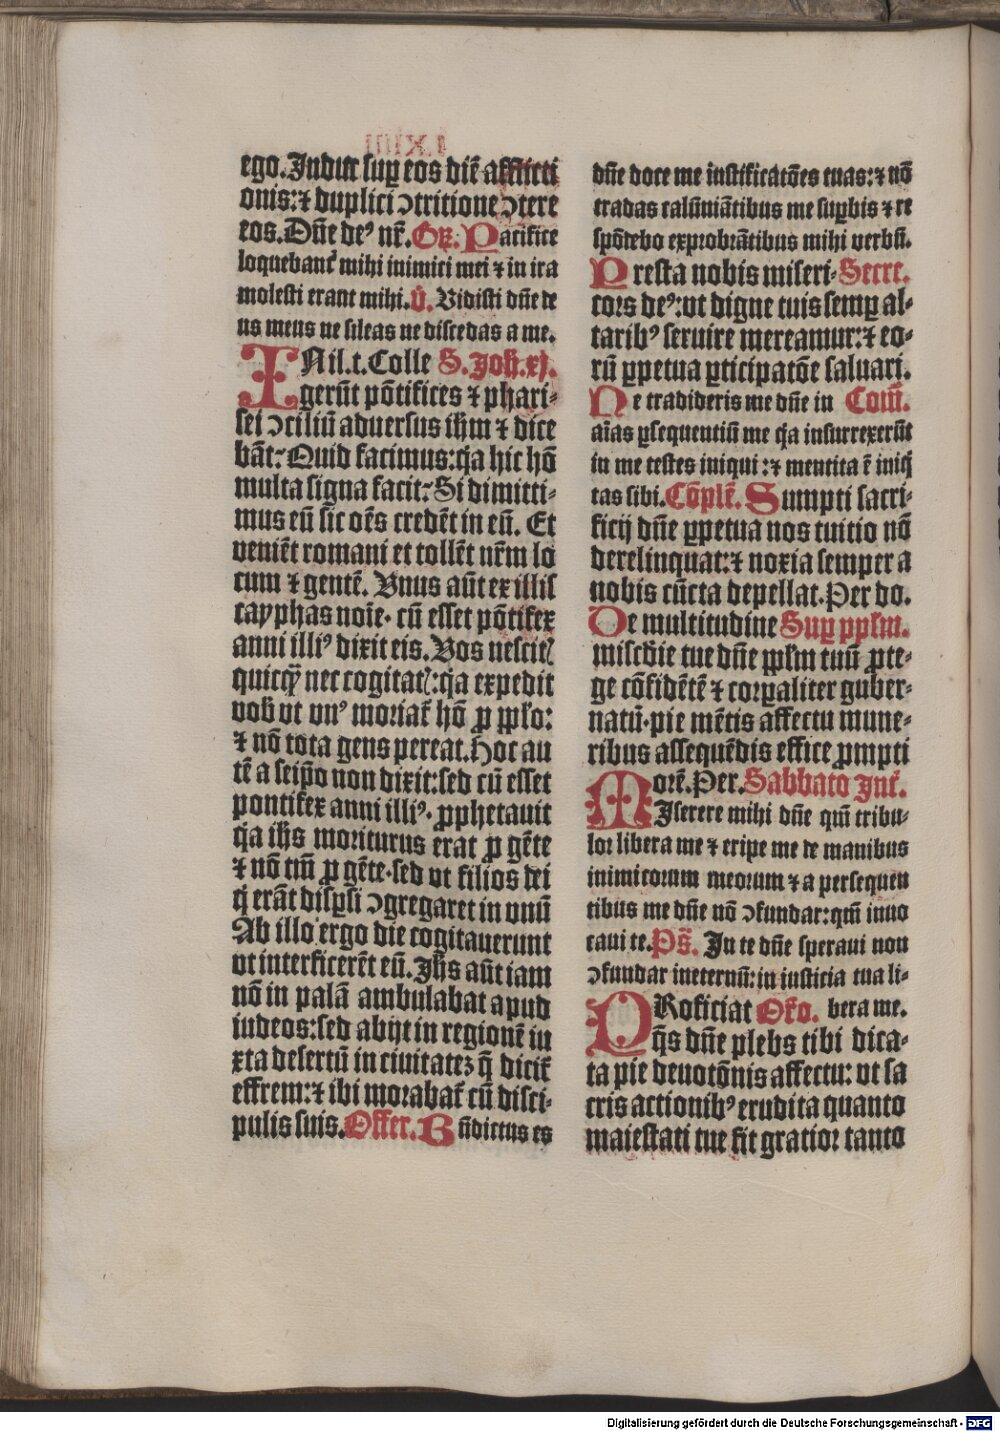 ego. Induc suꝑ eos diē afflicti
onis: ⁊ duplici ↄtritione ↄtere
eos. Dn̄e deꝰ nr̄. Gr̄. Pacifice
loquebant᷑ mihi inimici mei ⁊ in ira
molesti erant mihi. V̄. Vidisti dn̄e de
us meus ne sileas ne discedas a me.
IN il. t. Colle S. Joh. xj.
gerūt pōtifices ⁊ phari-
sei ↄciliū aduersus ih̄m ⁊ dice
bāt: Quid facimus: q̇a hic hō
multa signa facit: Si dimitti-
mus eū sic oēs credēt in eū. Et
veniēt romani et tollēt nr̄m lo
cum ⁊ gentē. Vnus aūt ex illis
cayphas noīe. cū esset pōtifex
anni illiꝰ dixit eis. Vos nescit᷑
quicq̄ nec cogitat᷑: q̇a expedit
vob̄ vt vnꝰ moriat᷑ hō ꝓ pp̄lo:
⁊ nō tota gens pereat. Hoc au
tē a seip̄o non dixit: sed cū esset
pontifex anni illiꝰ. ꝓphetauit
q̇a ih̄s moriturus erat ꝓ gēte
⁊ nō tm̄ ꝓ gēte. sed vt filios dei
q̇ erāt disꝑsi ↄgregaret in vnū
Ab illo ergo die cogitauerunt
vt interficerēt eū. Ih̄s aūt iam
nō in palā ambulabat apud
iudeos: sed abijt in regionē iu
xta desertū in ciuitatez q̄ dicit᷑
effrem: ⁊ ibi morabat᷑ cū disci-
pulis suis. Offer. Bn̄dictus es
dn̄e doce me iustificatōes tuas: ⁊ nō
tradas calūniātibus me suꝑbis ⁊ re
spōdebo exprobrātibus mihi verbū.
Presta nobis miseri- Secre.
cors deꝰ: vt digne tuis semꝑ al-
taribꝰ seruire mereamur: ⁊ eo-
rū ꝑpetua ꝑticipatōe saluari.
Ne tradideris me dn̄e in Com̄.
aīas ꝑsequentiū me q̇a insurrexerūt
in me testes iniqui: ⁊ mentita ē iniq̇
tas sibi. Cōplē. Sumpti sacri-
ficij dn̄e ꝑpetua nos tuitio nō
derelinquat: ⁊ noxia semper a
nobis cūcta depellat. Per do.
De multitudine Suꝑ pp̄lm.
miscd̄ie tue dn̄e pp̄lm tuū ꝓte-
ge cōfidētē ⁊ corꝑaliter guber-
natū. pie mētis affectu mune-
ribus assequēdis effice ꝓmpti
orē. Per. Sabbato Int᷑.
MIserere mihi dn̄e qm̄ tribu-
lor libera me ⁊ eripe me de manibus
inimicorum meorum ⁊ a persequen
tibus me dn̄e nō ↄfundar: qm̄ inuo
caui te. Ps̄. In te dn̄e speraui non
ↄfundar ineternū: in iusticia tua li-
PRoficiat Or̄o. bera me.
q̄s dn̄e plebs tibi dica-
ta pie deuotōnis affectu: vt sa
cris actionibꝰ erudita quanto
maiestati tue fit gratior tanto
Digitalisierung gefördert durch die Deutsche Forschungsgemeinschaft - DFG